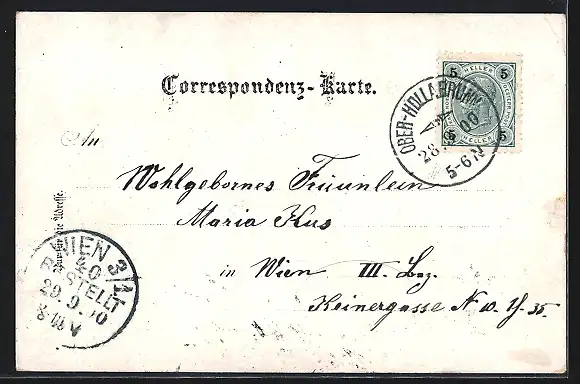 Correspondenz-Karte.
5 HELLER 5
5 5
OBER-HOLLABRUNN
28 9 00
5-6 N
An
Wohlgebornes Fräunlein
Maria Kus
in Wien III. Bez.
Keinergasse N 10. 35
Nur für die Adresse.
WIEN 3/1
BESTELLT
29. 9. 00
V